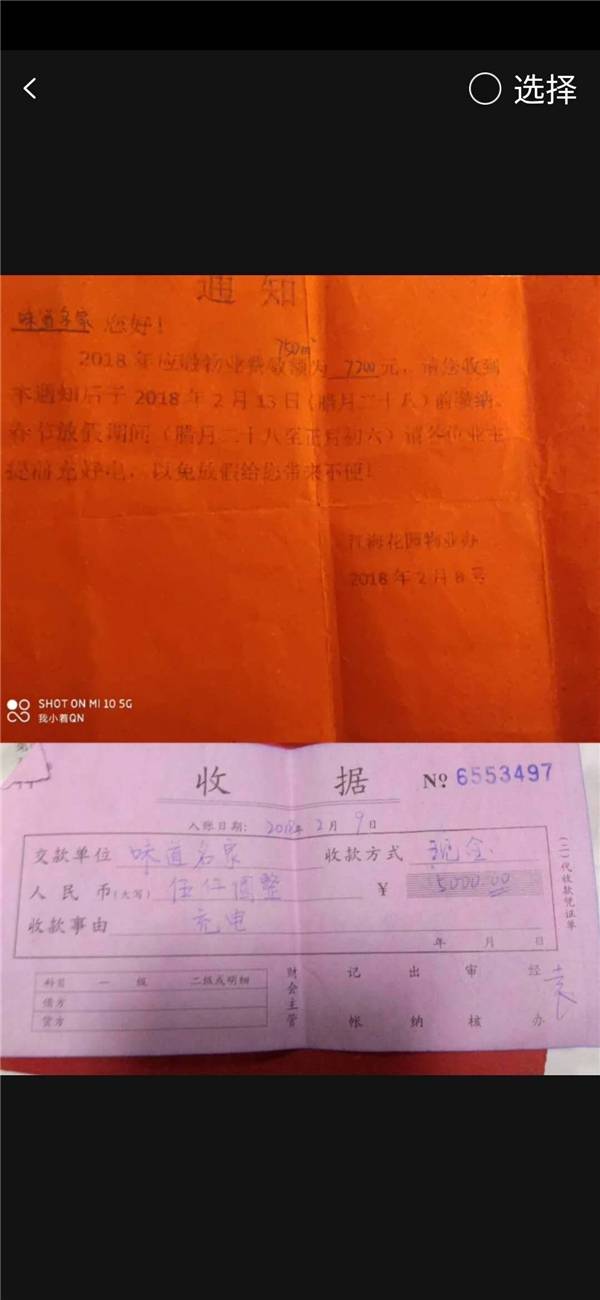 选择
通知
味道名家 您好！
750㎡
2018年应缴物业费数额为 7200 元，请您收到
本通知后于2018年2月13日（腊月二十八）前缴纳。
春节放假期间（腊月二十八至正月初六）请各位业主
提前充好电，以免放假给您带来不便！
江海花园物业办
2018年2月8号
SHOT ON MI 10 5G
我小着QN
收 据 № 6553497
入账日期：2018年2月9日
交款单位 味道名家 收款方式 现金
人民币（大写） 伍仟圆整 ￥ 5000.00
收款事由 充电
年 月 日
（二）代收款凭证单
科目 一级 二级或明细
借方
贷方
财会主管 记帐 出纳 审核 经办